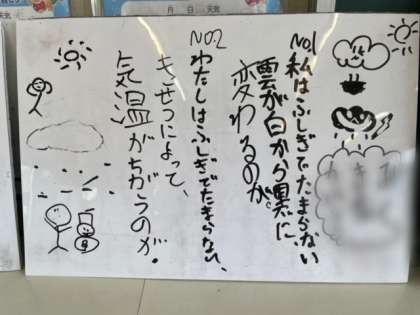 月 日 天気
月 日 天気
No.1 私はふしぎでたまらない
雲が白から黒に
変わるのが。
No.2 わたしはふしぎでたまらない、
きせつによって、
気温がちがうのが.